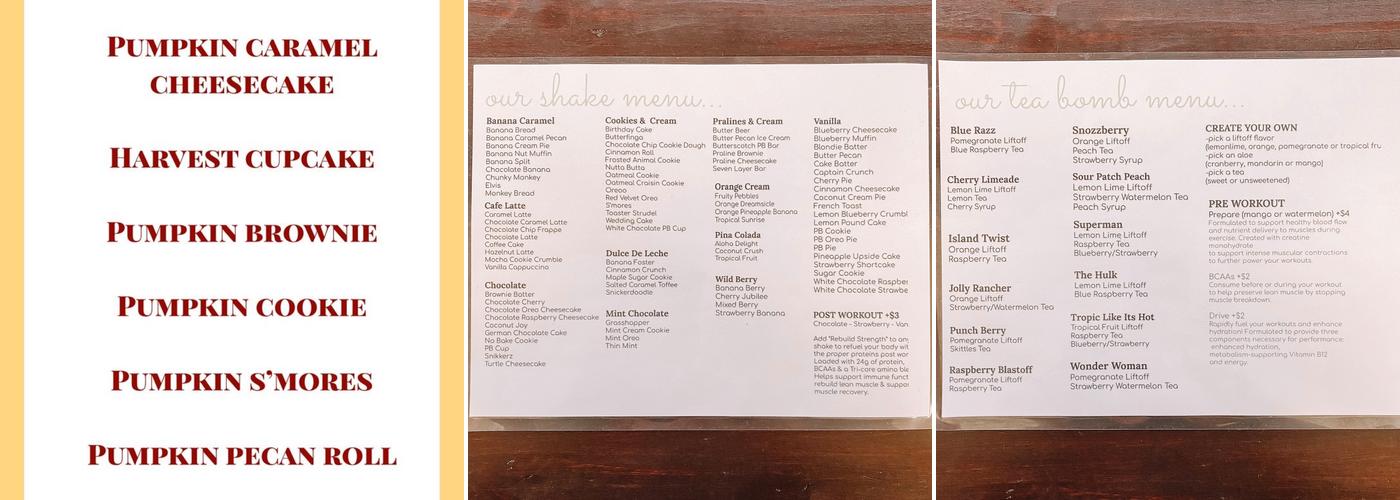 PUMPKIN CARAMEL
CHEESECAKE
HARVEST CUPCAKE
PUMPKIN BROWNIE
PUMPKIN COOKIE
PUMPKIN S'MORES
PUMPKIN PECAN ROLL
our shake menu...
Banana Caramel
Banana Bread
Banana Caramel Pecan
Banana Cream Pie
Banana Nut Muffin
Banana Split
Chocolate Banana
Chunky Monkey
Elvis
Monkey Bread
Cafe Latte
Caramel Latte
Chocolate Caramel Latte
Chocolate Chip Frappe
Chocolate Latte
Coffee Cake
Hazelnut Latte
Mocha Cookie Crumble
Vanilla Cappuccino
Chocolate
Brownie Batter
Chocolate Cherry
Chocolate Oreo Cheesecake
Chocolate Raspberry Cheesecake
Coconut Joy
German Chocolate Cake
No Bake Cookie
PB Cup
Snikkerz
Turtle Cheesecake
Cookies & Cream
Birthday Cake
Butterfinga
Chocolate Chip Cookie Dough
Cinnamon Roll
Frosted Animal Cookie
Nutta Butta
Oatmeal Cookie
Oatmeal Craisin Cookie
Oreoo
Red Velvet Oreo
S'mores
Toaster Strudel
Wedding Cake
White Chocolate PB Cup
Dulce De Leche
Banana Foster
Cinnamon Crunch
Maple Sugar Cookie
Salted Caramel Toffee
Snickerdoodle
Mint Chocolate
Grasshopper
Mint Cream Cookie
Mint Oreo
Thin Mint
Pralines & Cream
Butter Beer
Butter Pecan Ice Cream
Butterscotch PB Bar
Praline Brownie
Praline Cheesecake
Seven Layer Bar
Orange Cream
Fruity Pebbles
Orange Dreamsicle
Orange Pineapple Banana
Tropical Sunrise
Pina Colada
Aloha Delight
Coconut Crush
Tropical Fruit
Wild Berry
Banana Berry
Cherry Jubilee
Mixed Berry
Strawberry Banana
Vanilla
Blueberry Cheesecake
Blueberry Muffin
Blondie Batter
Butter Pecan
Cake Batter
Captain Crunch
Cherry Pie
Cinnamon Cheesecake
Coconut Cream Pie
French Toast
Lemon Blueberry Crumbl
Lemon Pound Cake
PB Cookie
PB Oreo Pie
PB Pie
Pineapple Upside Cake
Strawberry Shortcake
Sugar Cookie
White Chocolate Raspber
White Chocolate Strawbe
POST WORKOUT +$3
Chocolate - Strawberry - Van
Add "Rebuild Strength" to any
shake to refuel your body wit
the proper proteins post wor
Loaded with 24g of protein,
BCAAs & a Tri-core amino ble
Helps support immune funct
rebuild lean muscle & suppor
muscle recovery.
our tea bomb menu...
Blue Razz
Pomegranate Liftoff
Blue Raspberry Tea
Cherry Limeade
Lemon Lime Liftoff
Lemon Tea
Cherry Syrup
Island Twist
Orange Liftoff
Raspberry Tea
Jolly Rancher
Orange Liftoff
Strawberry/Watermelon Tea
Punch Berry
Pomegranate Liftoff
Skittles Tea
Raspberry Blastoff
Pomegranate Liftoff
Raspberry Tea
Snozzberry
Orange Liftoff
Peach Tea
Strawberry Syrup
Sour Patch Peach
Lemon Lime Liftoff
Strawberry Watermelon Tea
Peach Syrup
Superman
Lemon Lime Liftoff
Raspberry Tea
Blueberry/Strawberry
The Hulk
Lemon Lime Liftoff
Blue Raspberry Tea
Tropic Like Its Hot
Tropical Fruit Liftoff
Raspberry Tea
Blueberry/Strawberry
Wonder Woman
Pomegranate Liftoff
Strawberry Watermelon Tea
CREATE YOUR OWN
-pick a liftoff flavor
(lemonlime, orange, pomegranate or tropical fru
-pick an aloe
(cranberry, mandarin or mango)
-pick a tea
(sweet or unsweetened)
PRE WORKOUT
Prepare (mango or watermelon) +$4
Formulated to support healthy blood flow
and nutrient delivery to muscles during
exercise. Created with creatine
monohydrate
to support intense muscular contractions
to further power your workouts.
BCAAs +$2
Consume before or during your workout
to help preserve lean muscle by stopping
muscle breakdown.
Drive +$2
Rapidly fuel your workouts and enhance
hydration! Formulated to provide three
components necessary for performance:
enhanced hydration,
metabolism-supporting Vitamin B12
and energy.